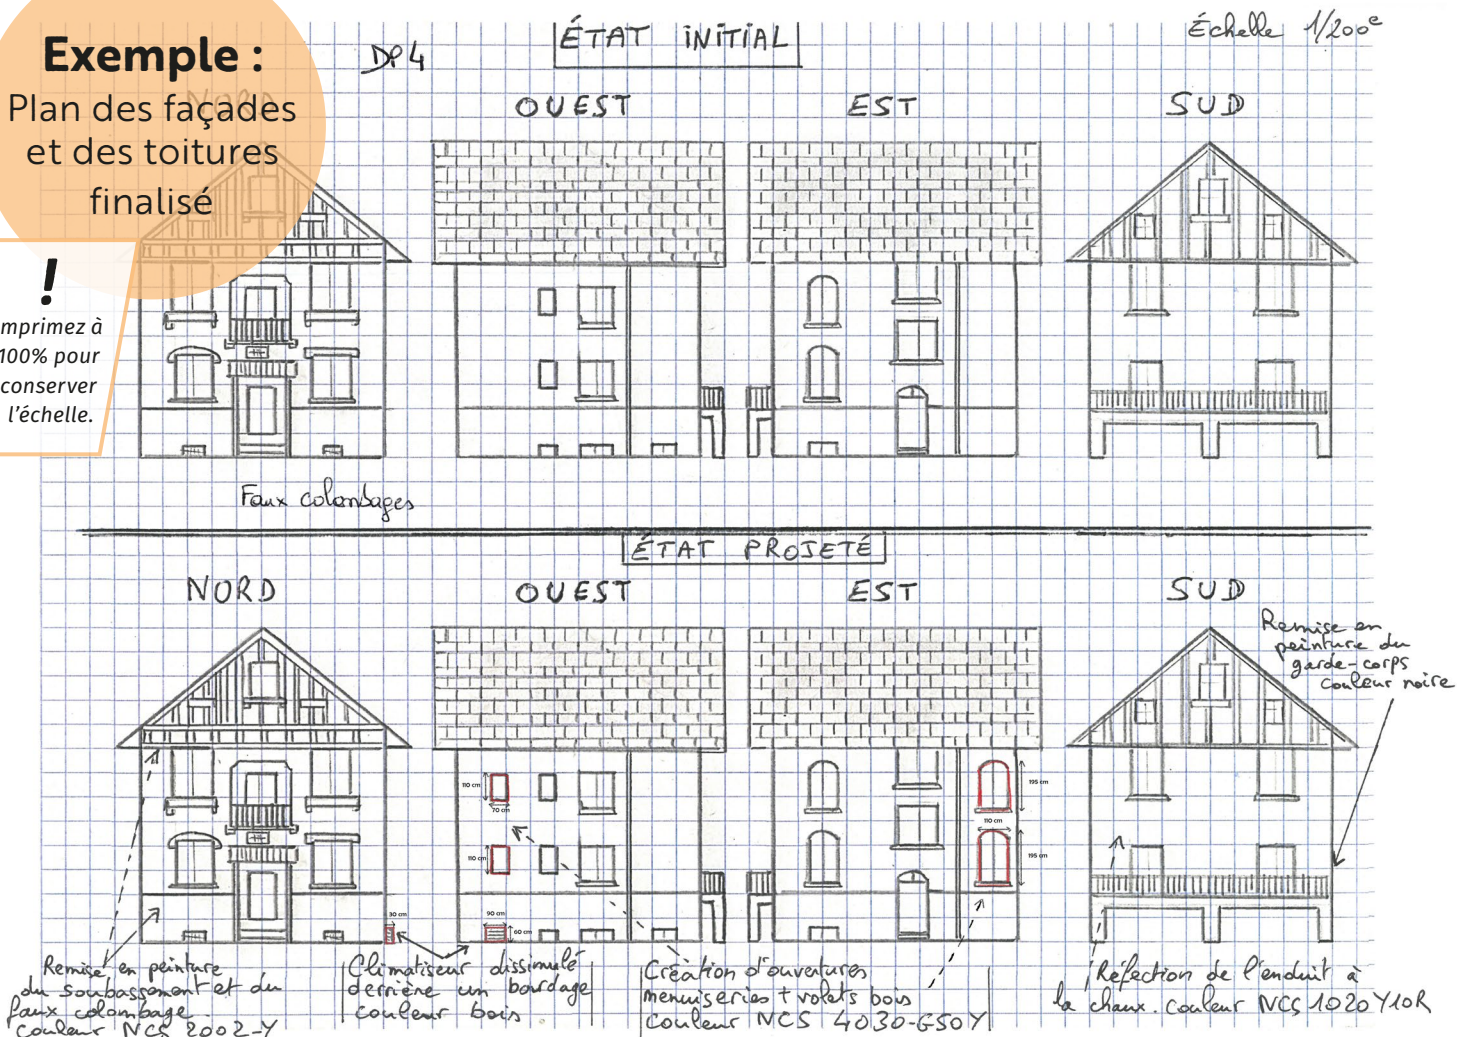 Exemple :
Plan des façades
et des toitures
finalisé
!
mprimez à
100% pour
conserver
l'échelle.
DP4
ÉTAT INITIAL
Échelle 1/200e
NORD
OUEST
EST
SUD
Faux colombages
ÉTAT PROJETÉ
NORD
OUEST
EST
SUD
Remise en
peinture du
garde-corps
couleur noire
110 cm
70 cm
110 cm
90 cm
60 cm
30 cm
195 cm
110 cm
195 cm
Remise en peinture
du soubassement et du
faux colombage.
Couleur NCS 2002-Y
Climatiseur dissimulé
derrière un bardage
couleur bois
Création d'ouvertures
menuiseries + volets bois
Couleur NCS 4030-G50Y
Réfection de l'enduit à
la chaux. Couleur NCS 1020 Y10R